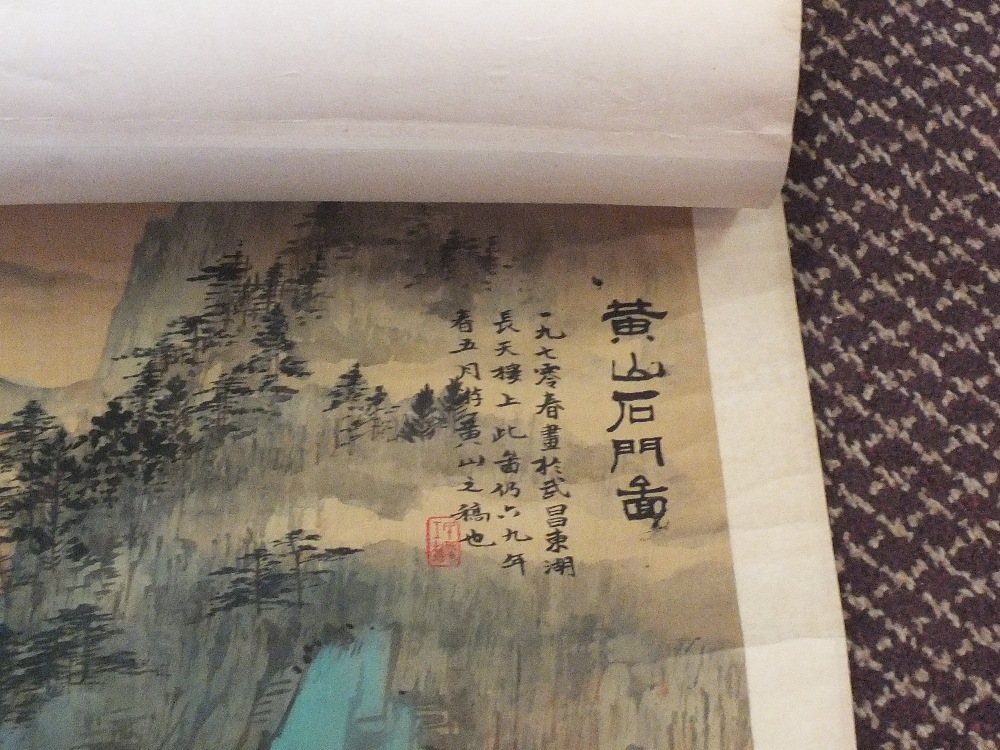 黄山石門啚
一九七零春畫於武昌東湖
長天樓上此啚仍六九年
春五月游黄山之稿也